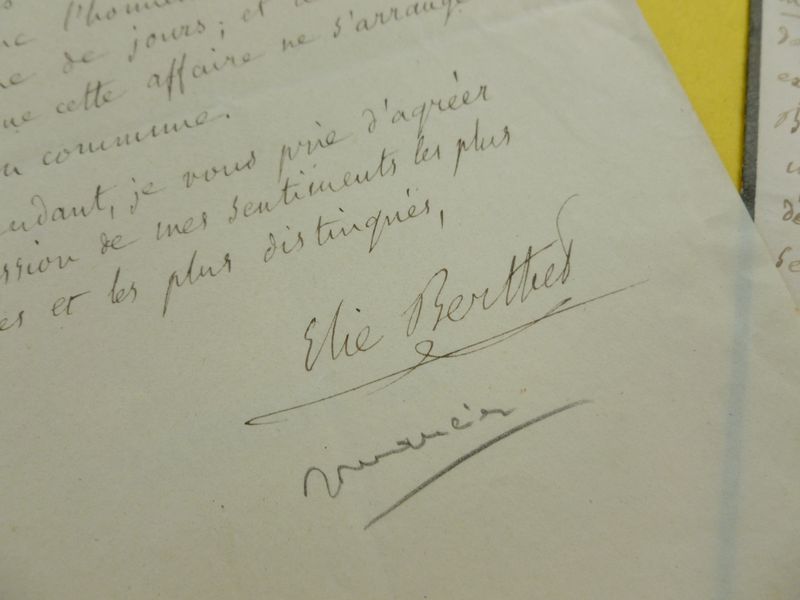 l'honneur
de jours; et
que cette affaire ne s'arrange
commune.
endant, je vous prie d'agréer
ssion de mes sentiments les plus
es et les plus distingués,
Elie Berthet